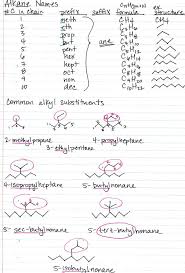 Alkane Names
CnH2n+2 ex.
# C in chain prefix suffix formula structure
1 meth CH4 CH4
2 eth C2H6
3 prop C3H8
4 but C4H10
5 pent ane C5H12
6 hex C6H14
7 hept C7H16
8 oct C8H18
9 non C9H20
10 dec C10H22
Common alkyl substituents
2-methylpropane 4-propylheptane
3-ethylpentane
4-isopropylheptane 5-butylnonane
5-sec-butylnonane 5-tert-butylnonane
5-isobutylnonane